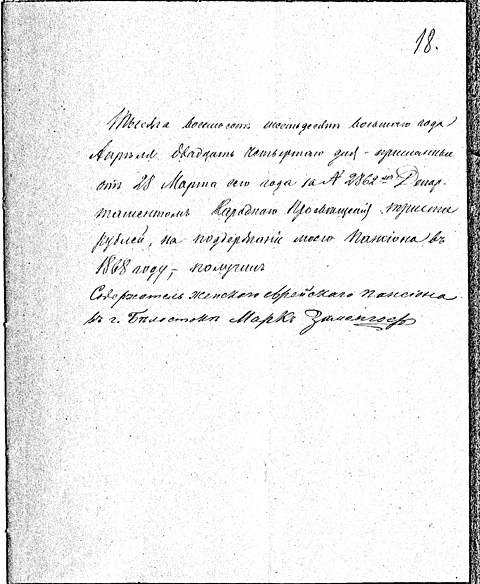 18.
Тысяча восемьсот шестьдесят восьмого года
Апрѣля двадцать четвертаго дня – присланные
отъ 28 Марта сего года за № 2862мъ Депар-
таментомъ Народнаго Просвѣщенія триста
рублей, на поддержаніе моего Пансіона въ
1868 году, – получилъ
Содержатель женскаго еврейскаго пансіона
въ г. Бѣлостокѣ Маркъ Заменгофъ